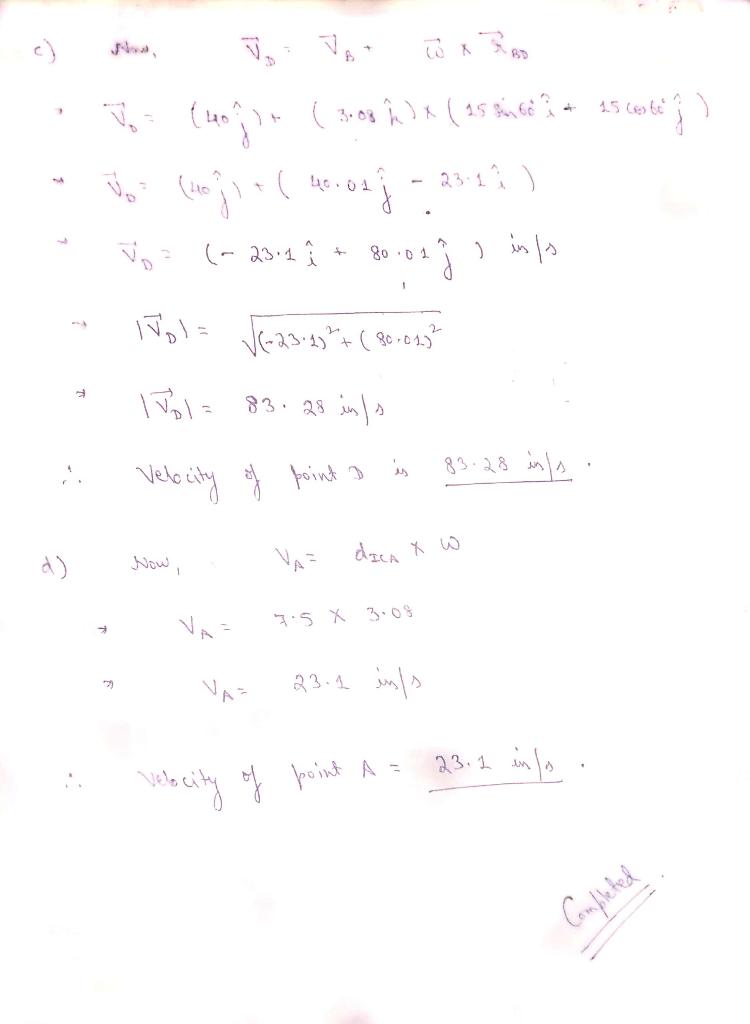 c) Now, V⃗_D = V⃗_B + ω⃗ × r⃗_BD
→ V⃗_D = (40 ĵ) + (3.08 k̂) × (15 sin60° î + 15 cos60° ĵ)
→ V⃗_D = (40 ĵ) + (40.01 ĵ - 23.1 î)
→ V⃗_D = (- 23.1 î + 80.01 ĵ) in/s
→ |V⃗_D| = √(-23.1)² + (80.01)²
→ |V⃗_D| = 83.28 in/s
∴ Velocity of point D is 83.28 in/s.
d) Now, V_A = d_ICA × ω
→ V_A = 7.5 × 3.08
→ V_A = 23.1 in/s
∴ Velocity of point A = 23.1 in/s.
Completed.